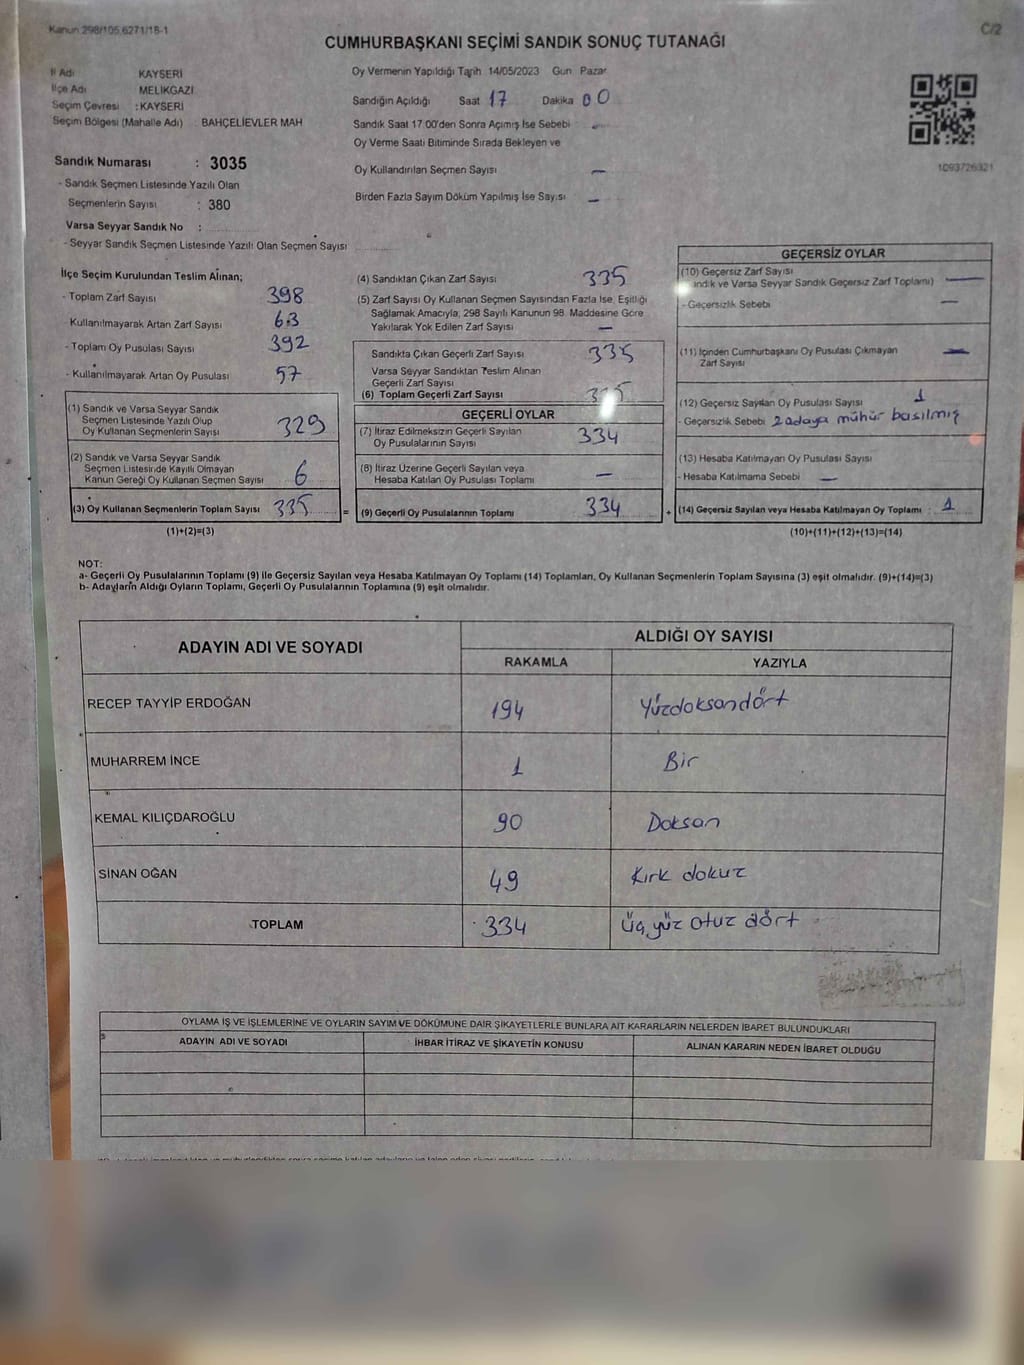 Kanun 298/105,6271/18-1
C/2
CUMHURBAŞKANI SEÇİMİ SANDIK SONUÇ TUTANAĞI
İl Adı KAYSERİ
İlçe Adı MELİKGAZİ
Seçim Çevresi : KAYSERİ
Seçim Bölgesi (Mahalle Adı) BAHÇELİEVLER MAH
Sandık Numarası : 3035
- Sandık Seçmen Listesinde Yazılı Olan
Seçmenlerin Sayısı : 380
Varsa Seyyar Sandık No :
- Seyyar Sandık Seçmen Listesinde Yazılı Olan Seçmen Sayısı
Oy Vermenin Yapıldığı Tarih 14/05/2023 Gün Pazar
Sandığın Açıldığı Saat 17 Dakika 00
Sandık Saat 17:00'den Sonra Açılmış İse Sebebi -
Oy Verme Saati Bitiminde Sırada Bekleyen ve
Oy Kullandırılan Seçmen Sayısı -
Birden Fazla Sayım Döküm Yapılmış İse Sayısı -
1093726321
İlçe Seçim Kurulundan Teslim Alınan;
- Toplam Zarf Sayısı 398
- Kullanılmayarak Artan Zarf Sayısı 63
- Toplam Oy Pusulası Sayısı 392
- Kullanılmayarak Artan Oy Pusulası 57
(1) Sandık ve Varsa Seyyar Sandık
Seçmen Listesinde Yazılı Olup
Oy Kullanan Seçmenlerin Sayısı 329
(2) Sandık ve Varsa Seyyar Sandık
Seçmen Listesinde Kayıtlı Olmayan
Kanun Gereği Oy Kullanan Seçmen Sayısı 6
(3) Oy Kullanan Seçmenlerin Toplam Sayısı 335 =
(1)+(2)=(3)
(4) Sandıktan Çıkan Zarf Sayısı 335
(5) Zarf Sayısı Oy Kullanan Seçmen Sayısından Fazla İse, Eşitliği
Sağlamak Amacıyla, 298 Sayılı Kanunun 98. Maddesine Göre
Yakılarak Yok Edilen Zarf Sayısı -
Sandıkta Çıkan Geçerli Zarf Sayısı 335
Varsa Seyyar Sandıktan Teslim Alınan
Geçerli Zarf Sayısı
(6) Toplam Geçerli Zarf Sayısı 335
GEÇERLİ OYLAR
(7) İtiraz Edilmeksizin Geçerli Sayılan
Oy Pusulalarının Sayısı 334
(8) İtiraz Üzerine Geçerli Sayılan veya
Hesaba Katılan Oy Pusulası Toplamı -
(9) Geçerli Oy Pusulalarının Toplamı 334 +
GEÇERSİZ OYLAR
(10) Geçersiz Zarf Sayısı
ındık ve Varsa Seyyar Sandık Geçersiz Zarf Toplamı) -
- Geçersizlik Sebebi -
(11) İçinden Cumhurbaşkanı Oy Pusulası Çıkmayan
Zarf Sayısı -
(12) Geçersiz Sayılan Oy Pusulası Sayısı 1
- Geçersizlik Sebebi 2 adaya mühür basılmış
(13) Hesaba Katılmayan Oy Pusulası Sayısı
- Hesaba Katılmama Sebebi -
(14) Geçersiz Sayılan veya Hesaba Katılmayan Oy Toplamı : 1
(10)+(11)+(12)+(13)=(14)
NOT:
a- Geçerli Oy Pusulalarının Toplamı (9) ile Geçersiz Sayılan veya Hesaba Katılmayan Oy Toplamı (14) Toplamları, Oy Kullanan Seçmenlerin Toplam Sayısına (3) eşit olmalıdır. (9)+(14)=(3)
b- Adayların Aldığı Oyların Toplamı, Geçerli Oy Pusulalarının Toplamına (9) eşit olmalıdır.
ADAYIN ADI VE SOYADI ALDIĞI OY SAYISI
RAKAMLA YAZIYLA
RECEP TAYYİP ERDOĞAN 194 Yüzdoksandört
MUHARREM İNCE 1 Bir
KEMAL KILIÇDAROĞLU 90 Doksan
SİNAN OĞAN 49 Kırk dokuz
TOPLAM 334 Üç yüz otuz dört
OYLAMA İŞ VE İŞLEMLERİNE VE OYLARIN SAYIM VE DÖKÜMÜNE DAİR ŞİKAYETLERLE BUNLARA AİT KARARLARIN NELERDEN İBARET BULUNDUKLARI
ADAYIN ADI VE SOYADI İHBAR İTİRAZ VE ŞİKAYETİN KONUSU ALINAN KARARIN NEDEN İBARET OLDUĞU